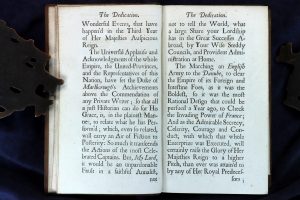 The Dedication.
Wonderful Events, that have
happen'd in the Third Year
of Her Majesties Auspicious
Reign.
The Universal Applause and
Acknowledgments of the whole
Empire, the United-Provinces,
and the Representatives of this
Nation, have set the Duke of
Marlborough's Atchievements
above the Commendation of
any Private Writer; so that all
a just Historian can do for His
Grace, is, in the plainest Man-
ner, to relate what he has Per-
form'd; which, even so related,
will carry an Air of Fiction to
Posterity: So much it transcends
the Actions of the most Cele-
brated Captains. But, My Lord,
it would be an unpardonable
Fault in a faithful Annalist,
not
The Dedication.
not to tell the World, what
a large Share your Lordship
has in the Great Successes A-
broad, by Your Wise Steddy
Councils, and Provident Admi-
nistration at Home.
The Marching an English
Army to the Danube, to clear
the Empire of its Foreign and
Intestine Foes, as it was the
Boldest, so it was the most
Rational Design that could be
pursu'd a Year ago, to Check
the Invading Power of France;
And as the Admirable Secrecy,
Celerity, Courage and Con-
duct, with which that whole
Enterprize was Executed, will
certainly raise the Glory of Her
Majesties Reign to a higher
Pitch, than ever was attain'd to
by any of Her Royal Predecef-
sors;